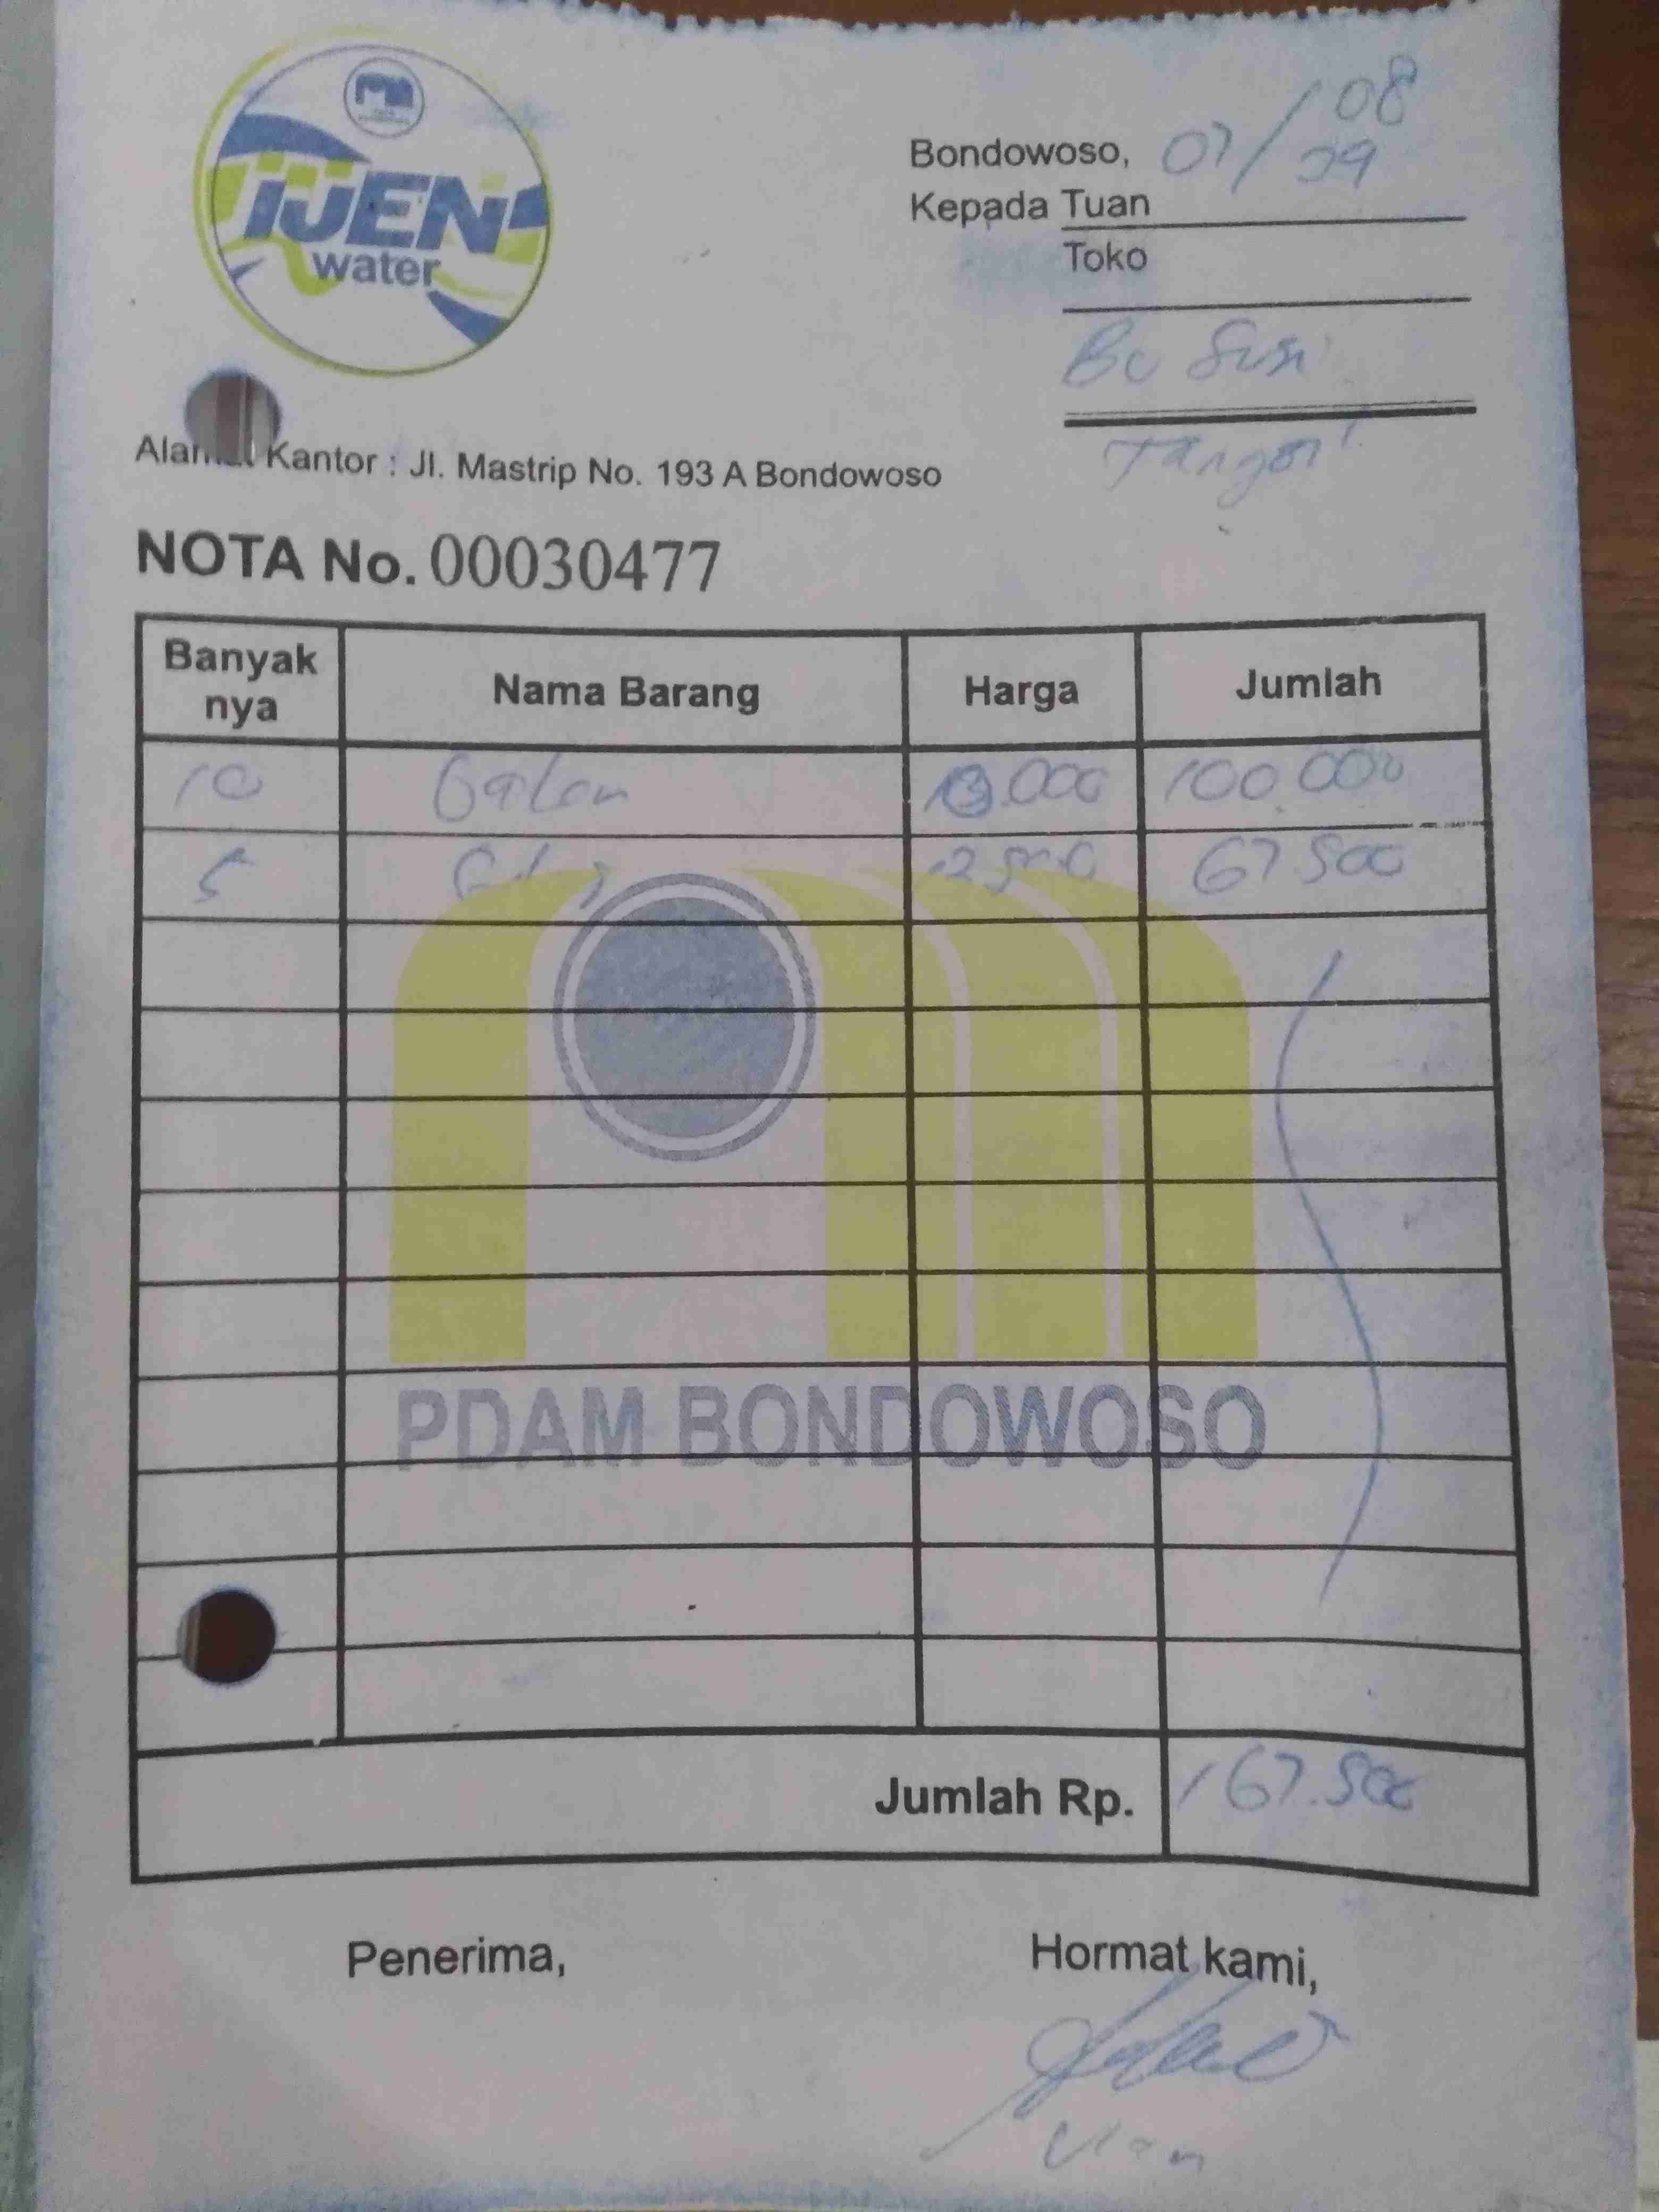 IJEN
water
Bondowoso, 07/08
Kepada Tuan
Toko
Bu Susi
Alamat Kantor : Jl. Mastrip No. 193 A Bondowoso
NOTA No. 00030477
Banyak nya Nama Barang Harga Jumlah
10 Galon 100.000
5 67.500
PDAM BONDOWOSO
Jumlah Rp. 167.500
Penerima, Hormat kami,